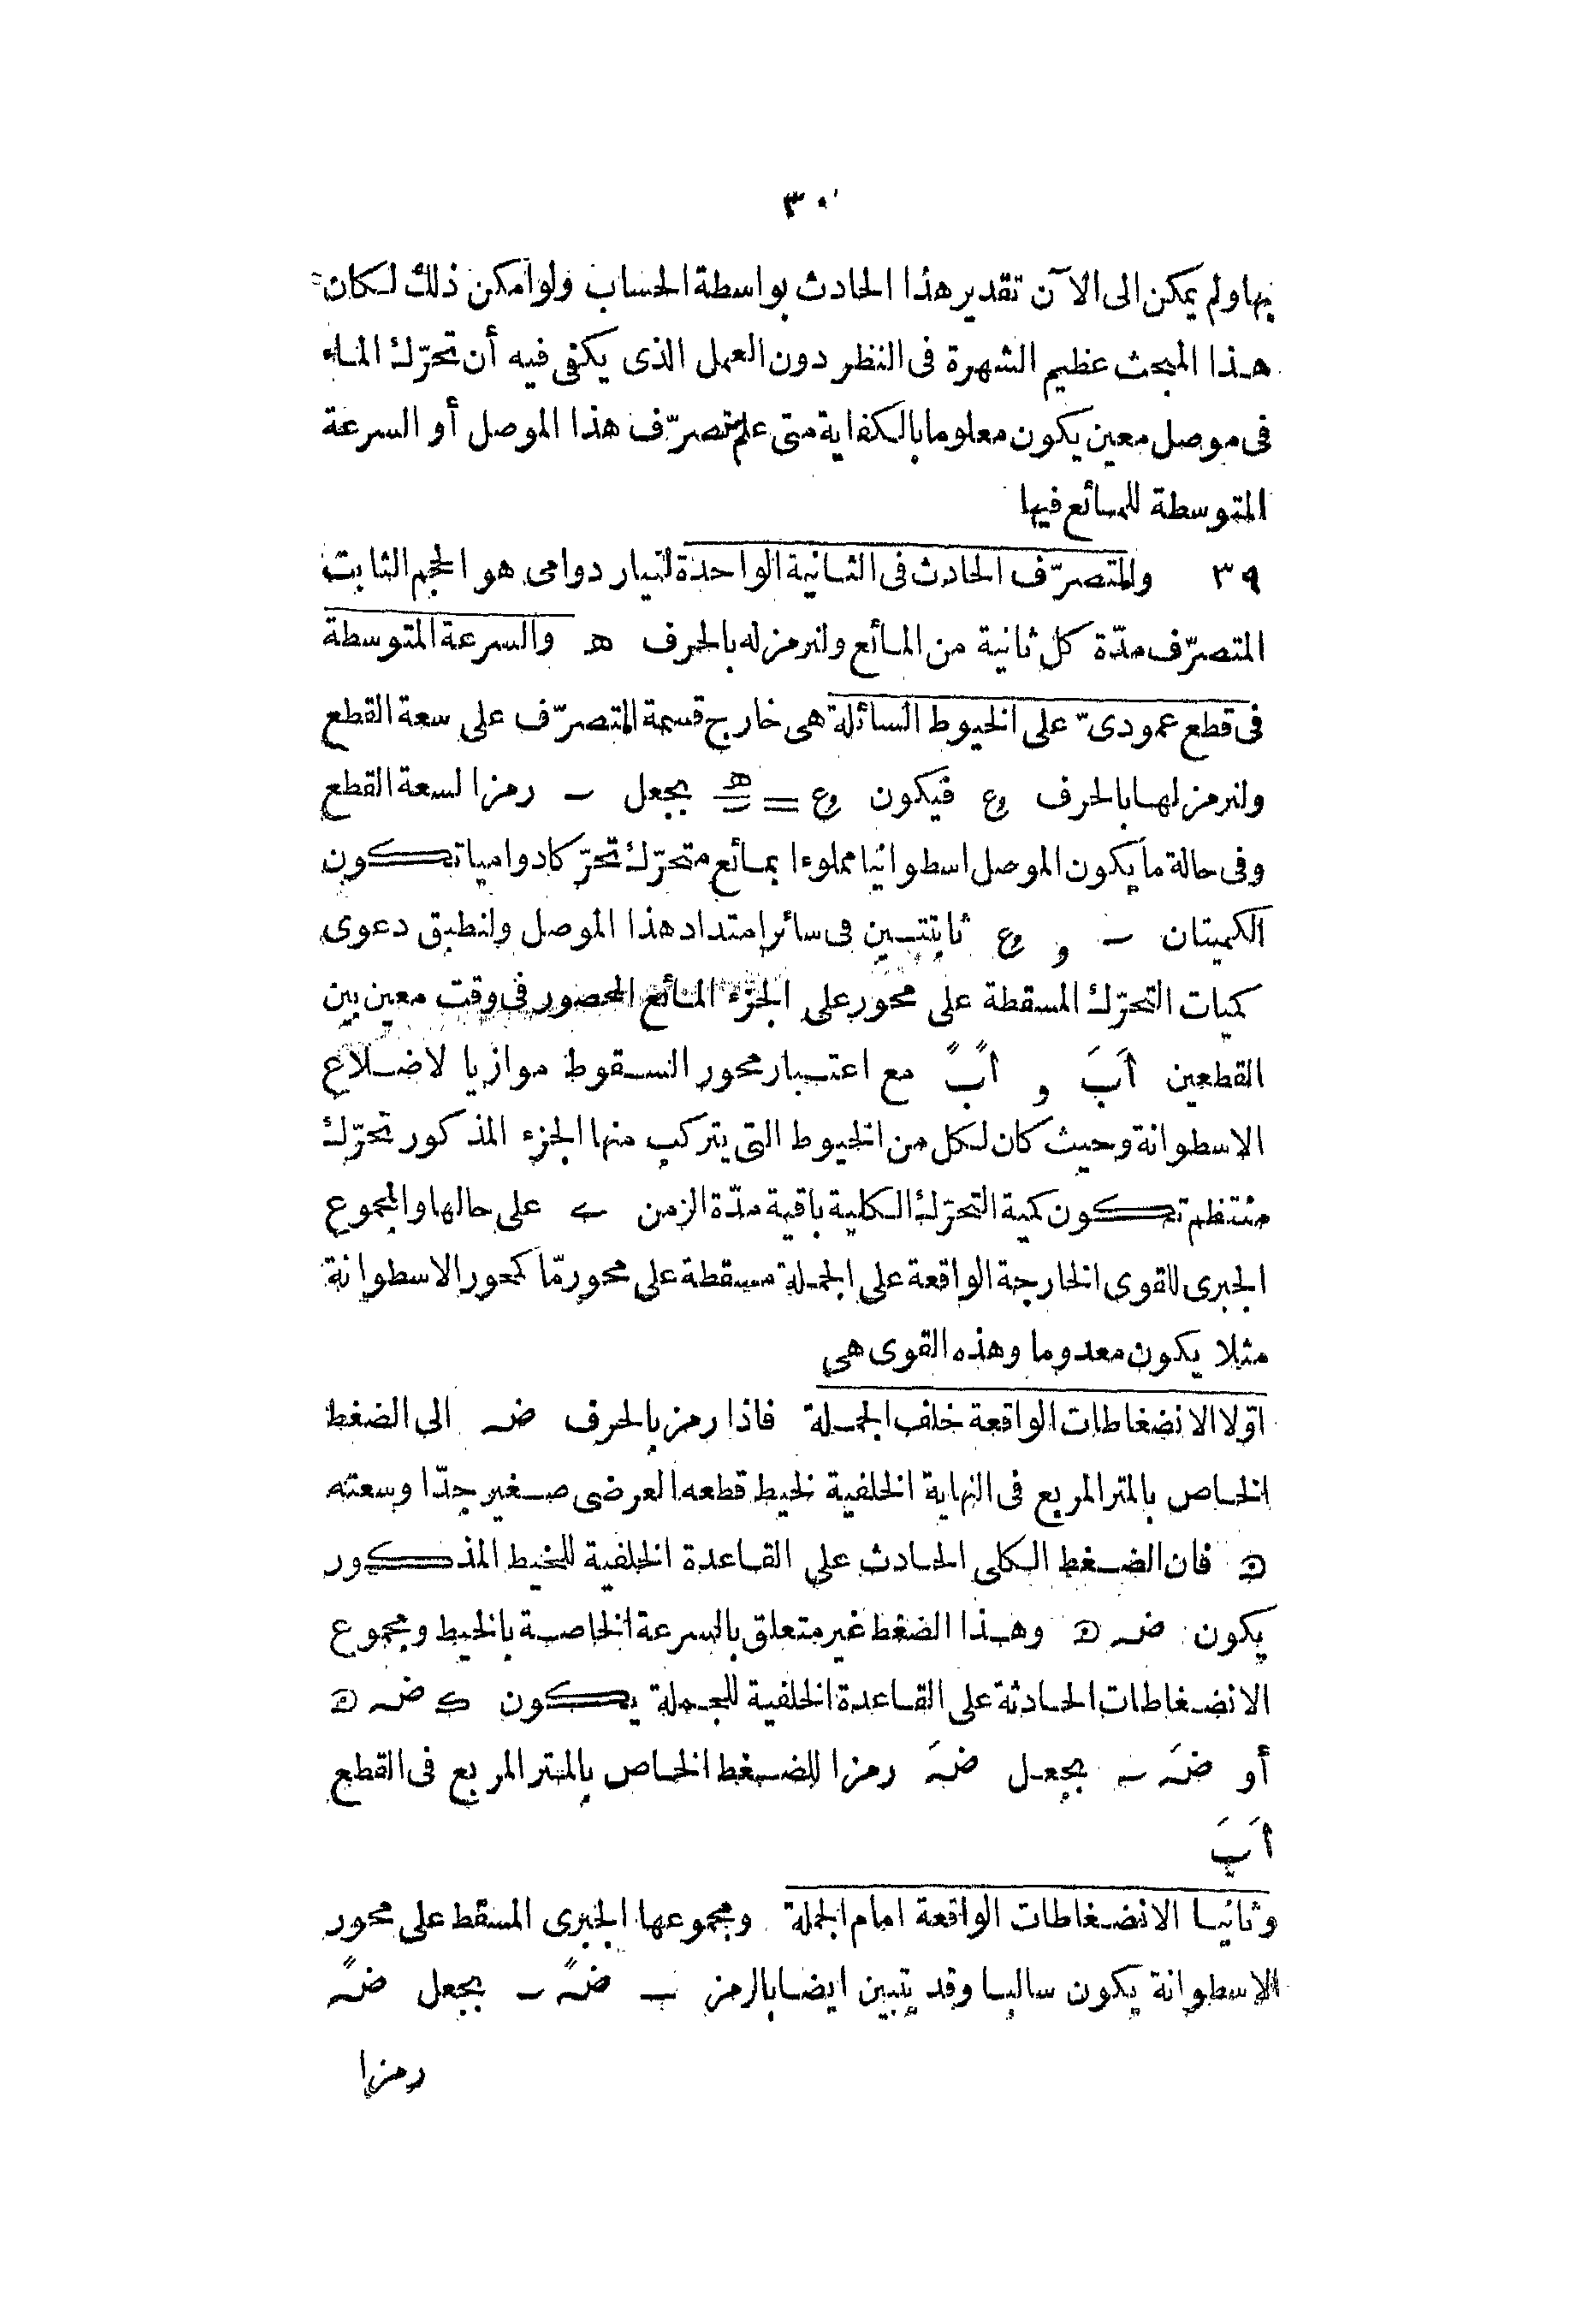 ٣٠
بها ولم يمكن الى الآن تقدير هذا الحادث بواسطة الحساب ولو امكن ذلك لكان
هذا المبحث عظيم الشهرة فى النظر دون العمل الذى يكفى فيه أن تحرّك الماء
فى موصل معين يكون معلوما بالكفاية متى علم متصرّف هذا الموصل أو السرعة
المتوسطة للمائع فيها
٣٩ والمتصرّف الحادث فى الثانية الواحدة لتيار دوامى هو الحجم الثابت
المتصرّف مدّة كل ثانية من المائع ولنرمز له بالحرف ھ والسرعة المتوسطة
فى قطع عمودىّ على الخيوط السائلة هى خارج قسمة المتصرّف على سعة القطع
ولنرمز لها بالحرف وع فيكون وع = ھ/س بجعل س رمزا لسعة القطع
وفى حالة ما يكون الموصل اسطوانيا مملوءا بمائع متحرّك تحرّكا دواميا تكون
الكميتان س و وع ثابتتين فى سائر امتداد هذا الموصل ولنطبق دعوى
كميات التحرّك المسقطة على محور على الجزء المائع المحصور فى وقت معين بين
القطعين اَبَ و اًبً مع اعتبار محور السقوط موازيا لاضلاع
الاسطوانة وحيث كان لكل من الخيوط التى يتركب منها الجزء المذكور تحرّك
منتظم تكون كمية التحرّك الكلية باقية مدّة الزمن ے على حالها والمجموع
الجبرى للقوى الخارجة الواقعة على الجملة مسقطة على محور مّا كمحور الاسطوانة
مثلا يكون معدوما وهذه القوى هى
اوّلا الانضغاطات الواقعة خلف الجملة فاذا رمز بالحرف ضہ الى الضغط
الخاص بالمتر المربع فى النهاية الخلفية لخيط قطعه العرضى صغير جدّا وسعته
ϖ فان الضغط الكلى الحادث على القاعدة الخلفية للخيط المذكور
يكون ضہ ϖ وهذا الضغط غير متعلق بالسرعة الخاصة بالخيط ومجموع
الانضغاطات الحادثة على القاعدة الخلفية للجملة يكون ک ضہ ϖ
أو ضَہ س بجعل ضَہ رمزا للضغط الخاص بالمتر المربع فى القطع
اَبَ
وثانيا الانضغاطات الواقعة امام الجملة ومجموعها الجبرى المسقط على محور
الاسطوانة يكون سالبا وقد يتبين ايضا بالرمز ـ ضًہ س بجعل ضًہ
رمزا